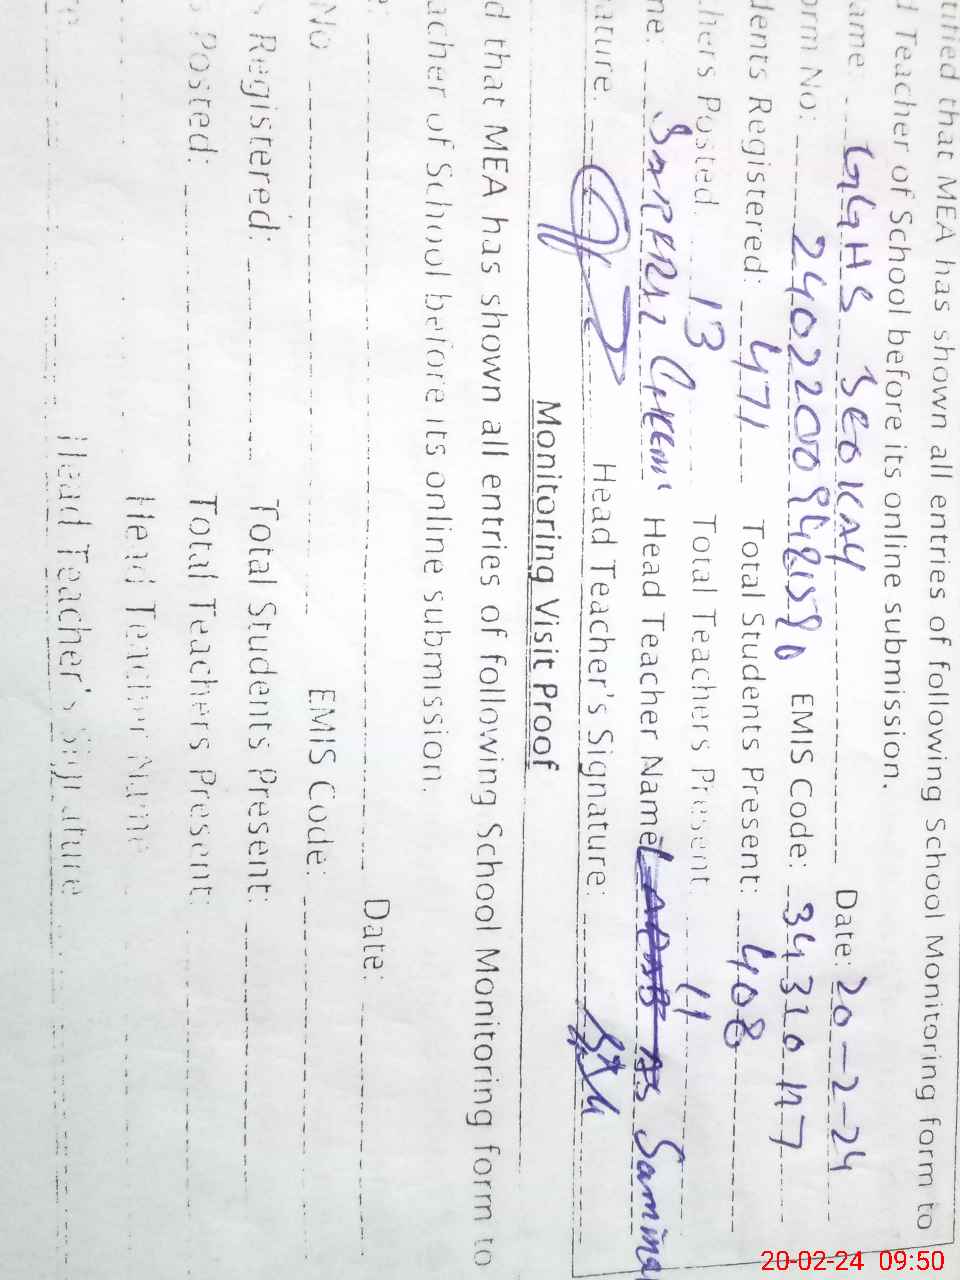 tified that MEA has shown all entries of following School Monitoring form to
d Teacher of School before its online submission.
ame: GGHS SEOKAY Date: 20-2-24
orm No: EMIS Code: 34310117
dents Registered: 471 Total Students Present: 408
chers Posted 13 Total Teachers Present 11
me: Head Teacher Name Samina
ature. Head Teacher's Signature:
Monitoring Visit Proof
d that MEA has shown all entries of following School Monitoring form to
acher of School before its online submission.
e: Date:
No EMIS Code:
s Registered: Total Students Present:
s Posted: Total Teachers Present:
Head Teacher Name
re Head Teacher's Signature
20-02-24 09:50